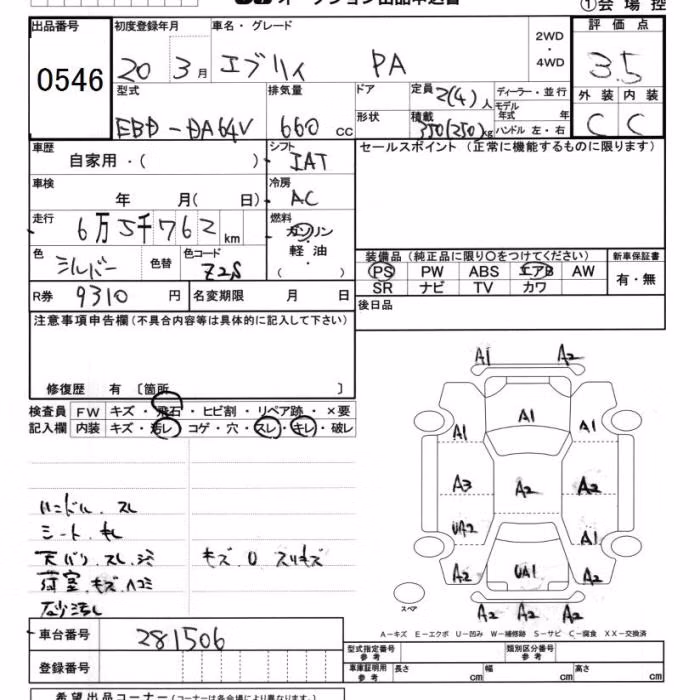 ①会場控
出品番号 初度登録年月 車名・グレード 2WD・4WD 評価点
0546 20 3月 エブリィ PA 3.5
型式 排気量 ドア 定員 2(4)人 ディーラー・並行 外装 内装
EBD-DA64V 660cc 形状 積載 350(250)kg モデル年式 年 ハンドル 左・右 C C
車歴 自家用・( ) シフト IAT セールスポイント(正常に機能するものに限ります)
車検 年 月( 日) 冷房 AC
走行 6万5千762km 燃料 ガソリン・軽油 ( )
色 シルバー 色替 色コード Z2S 装備品(純正品に限り〇をつけてください) 新車保証書
PS PW ABS エアB AW 有・無
SR ナビ TV カワ
R券 9310円 名変期限 月 日 後日品
注意事項申告欄(不具合内容等は具体的に記入して下さい)
修復歴 有〔箇所 〕
検査員 FW キズ・飛石・ヒビ割・リペア跡・×要
記入欄 内装 キズ・汚レ・コゲ・穴・スレ・キレ・破レ
A1 A2
A1
A1 A1
A3 A2 A2
UA2 A1
A2 UA1 A2
A2 A2 A2
スペア
ハンドル.スレ
シート.キレ
天バリ.スレ.シミ キズ.U スリキズ
荷室.キズ.ヘコミ
砂汚レ
A-キズ E-エクボ U-凹み W-補修跡 S-サビ C-腐食 XX-交換済
車台番号 281506
型式指定番号 参考 類別区分番号 参考
登録番号 車庫証明用 参考 長さ cm 幅 cm 高さ cm
希望出品コーナー(コーナーは各会場により異なります。)